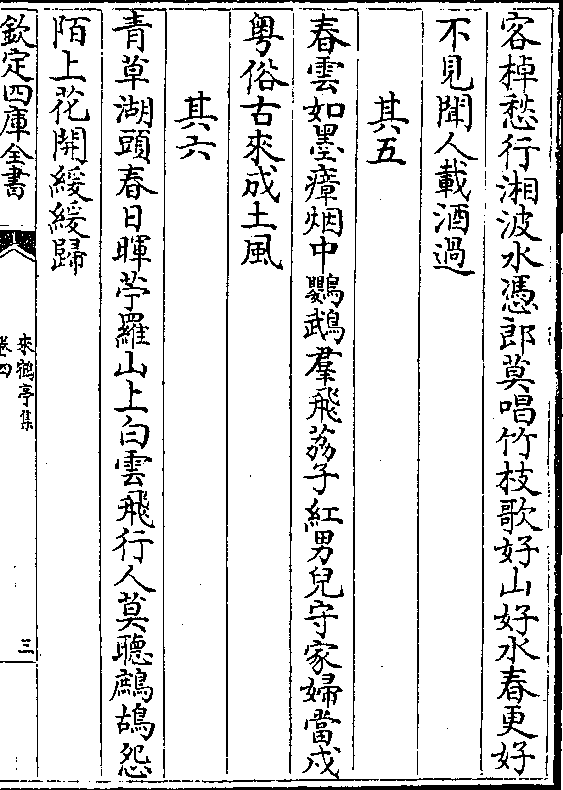 客棹愁行湘波水憑郎莫唱竹枝歌好山好水春更好
不見聞人載酒過
其五
春雲如墨瘴烟中鸚鵡羣飛荔子紅男兒守家婦當戍
粤俗古來成土風
其六
青草湖頭春日暉苧羅山上白雲飛行人莫聽鷓鴣怨
陌上花開緩緩歸
欽定四庫全書
來鶴亭集
卷四
三